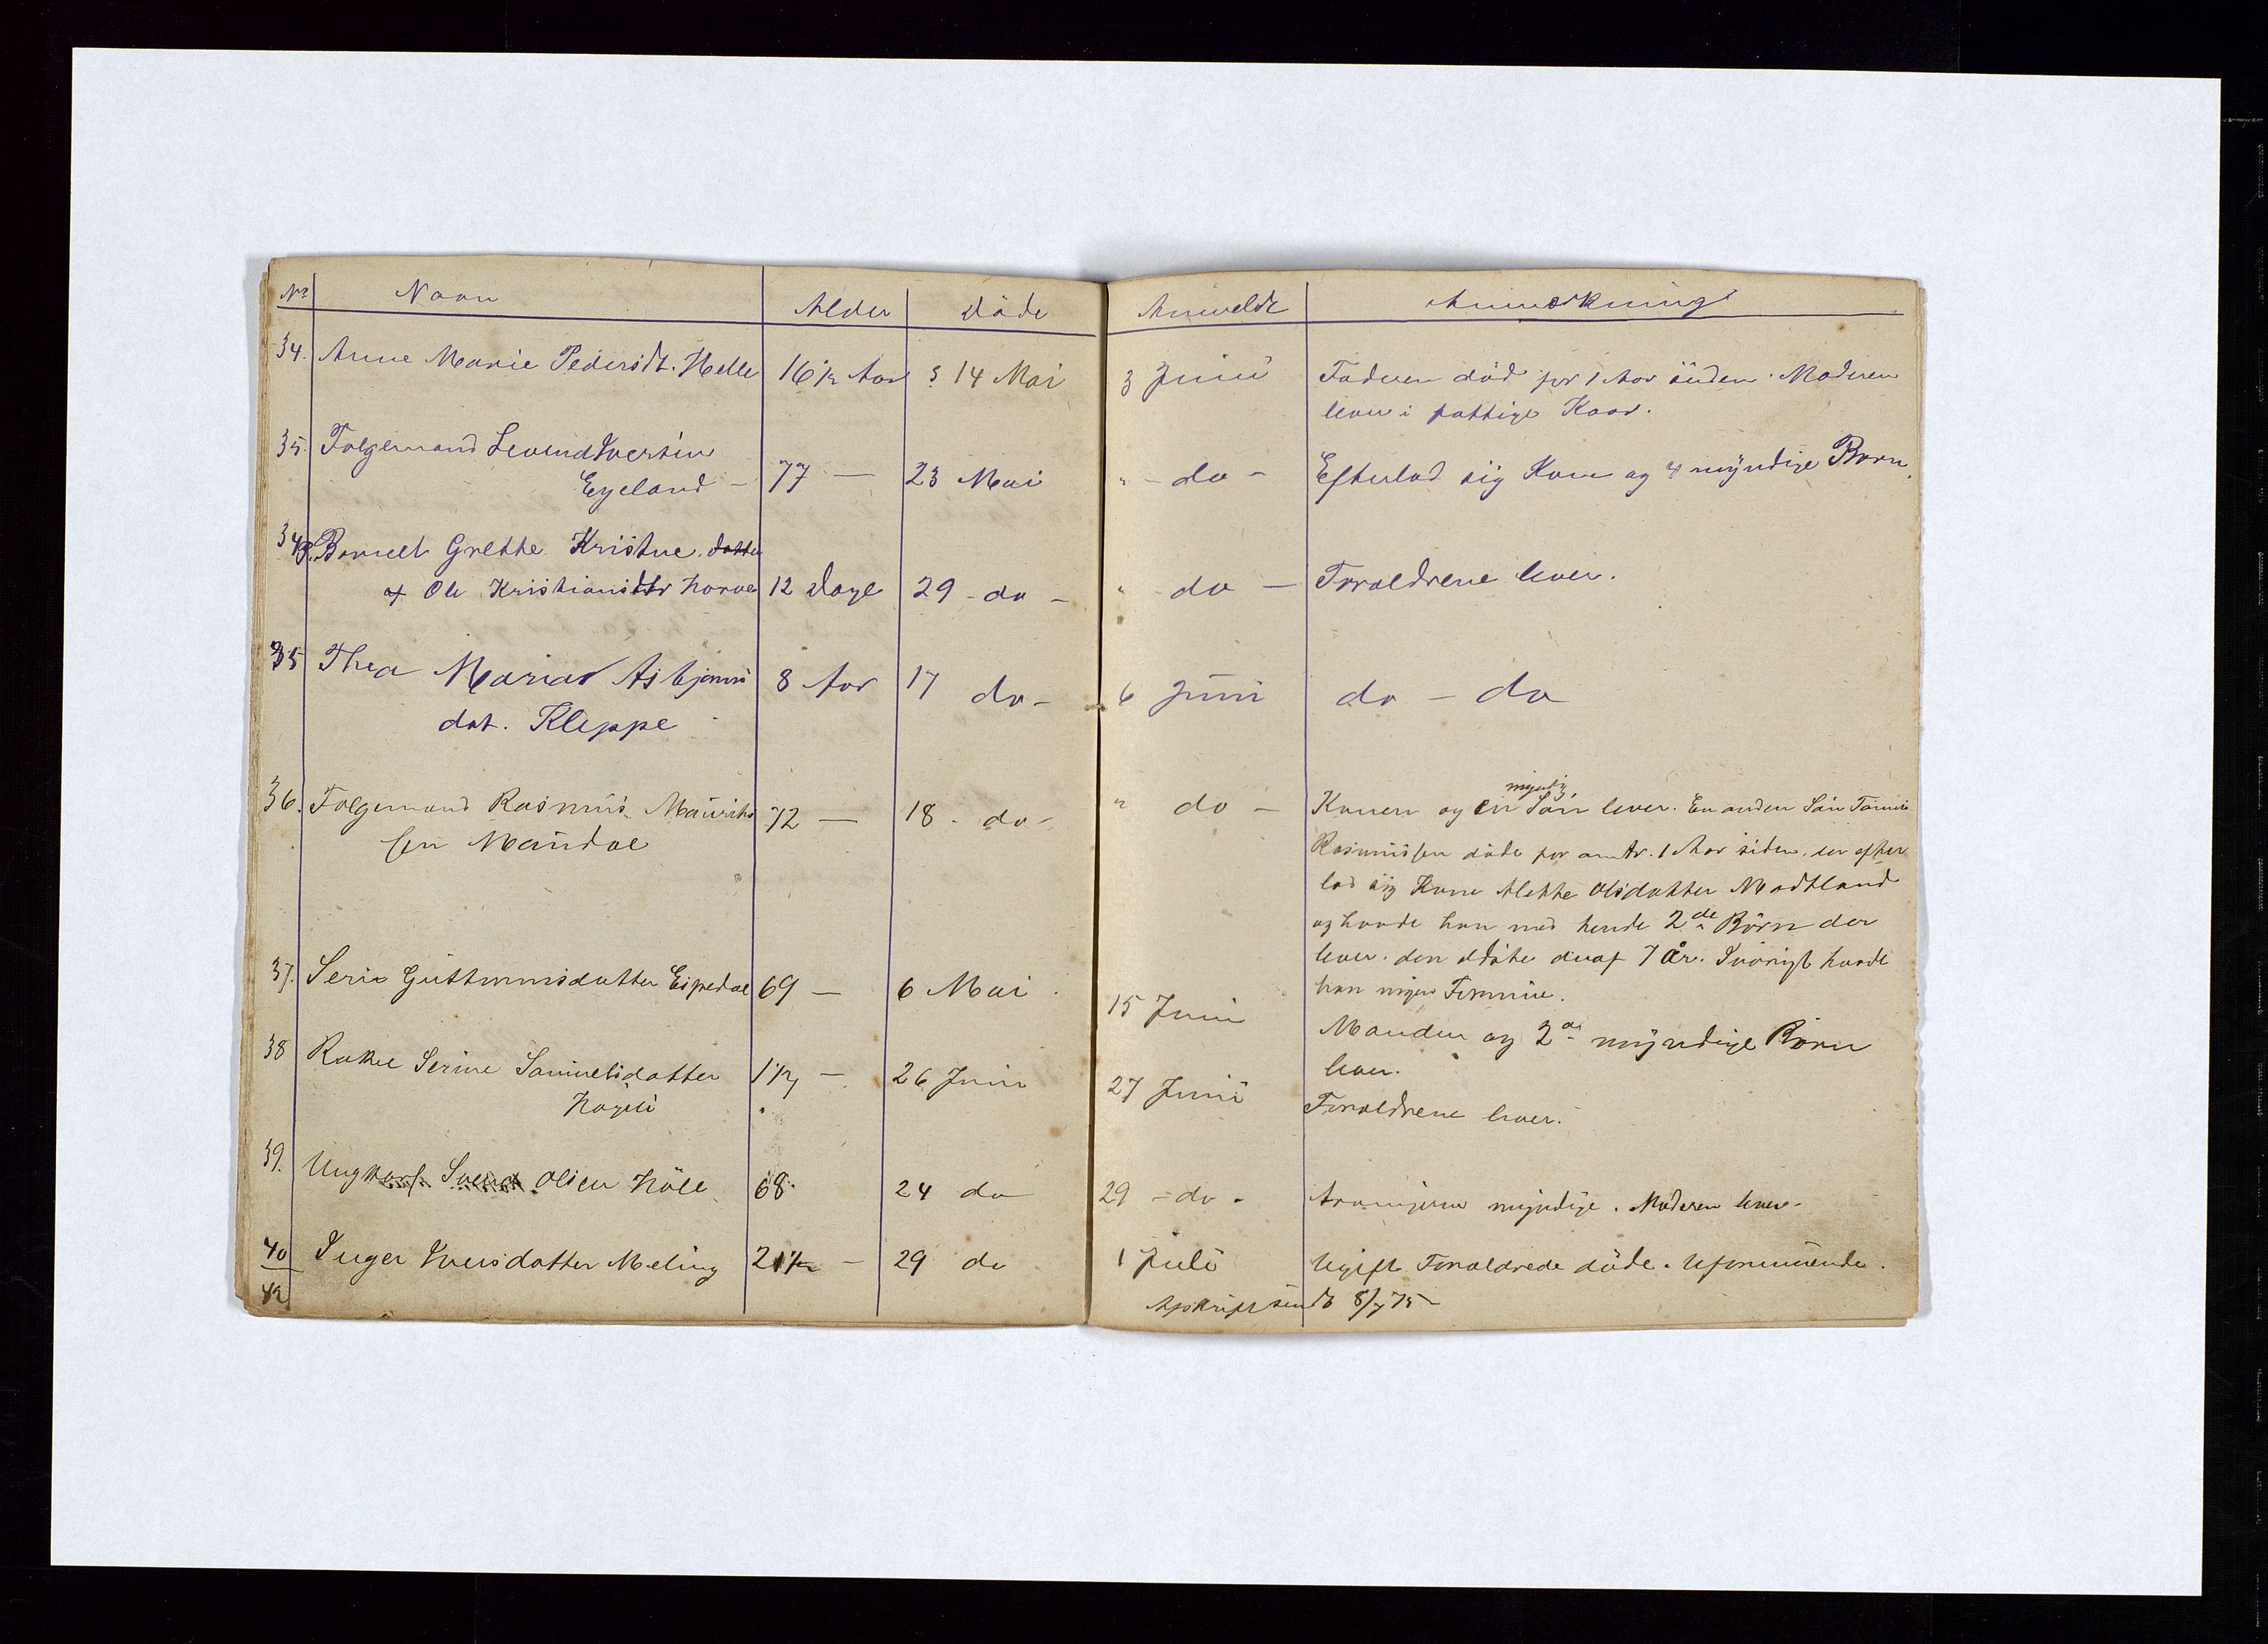 No Navn Alder Döde Anmeldt Anmærkning
34. Anne Marie Pedersdt. Helle 16 1/2 Aar 14 Mai 3 Juni Faderen död for 1 Aar siden. Moderen
lever i fattige Kaar.
35. Folgemand Sevend Iversen
Eyeland - 77 — 23 Mai " - do - Efterlod sig Kone og 4 myndige Børn.
34 Barnet Grethe Kristine, datter
af Ole Kristians 12 Dage 29 - do - " do — Foroeldrene lever.
35 Thea Maria Asbjørns 8 Aar 17 do - 6 Juni do - do
dat. Kleppe
36. Folgemand Rasmus Maurits 72 — 18. do - " do - Konen og en myndig Sön lever. En anden Sön Tönnes
sen Maudal
Rasmussen döde for omtr. 1 Aar siden, efter
lod sig Kone Olsdatter Madtland
og havde han med hende 2de Börn der
lever. den eldste deraf 7 År. Iövrigt havde
han ingen Formue.
37. Seri Guttormsdatter Espedal 69 — 6 Mai. 15 Juni Manden og 2de myndige Børn
lever.
38 Rakel Serine Samuelsdatter 26 Juni 27 Juni Foroeldrene lever.
39. Ungkarl Svend Olsen Höle 68. 24 do 29 - do - Arvingerne myndige. Moderen lever.
40 Inger Iversdatter Meling 21 — 29 do 1 Juli Ugift Foroeldrede döde. Uformuende.
42 Afskrift sendt 8/7 75 -